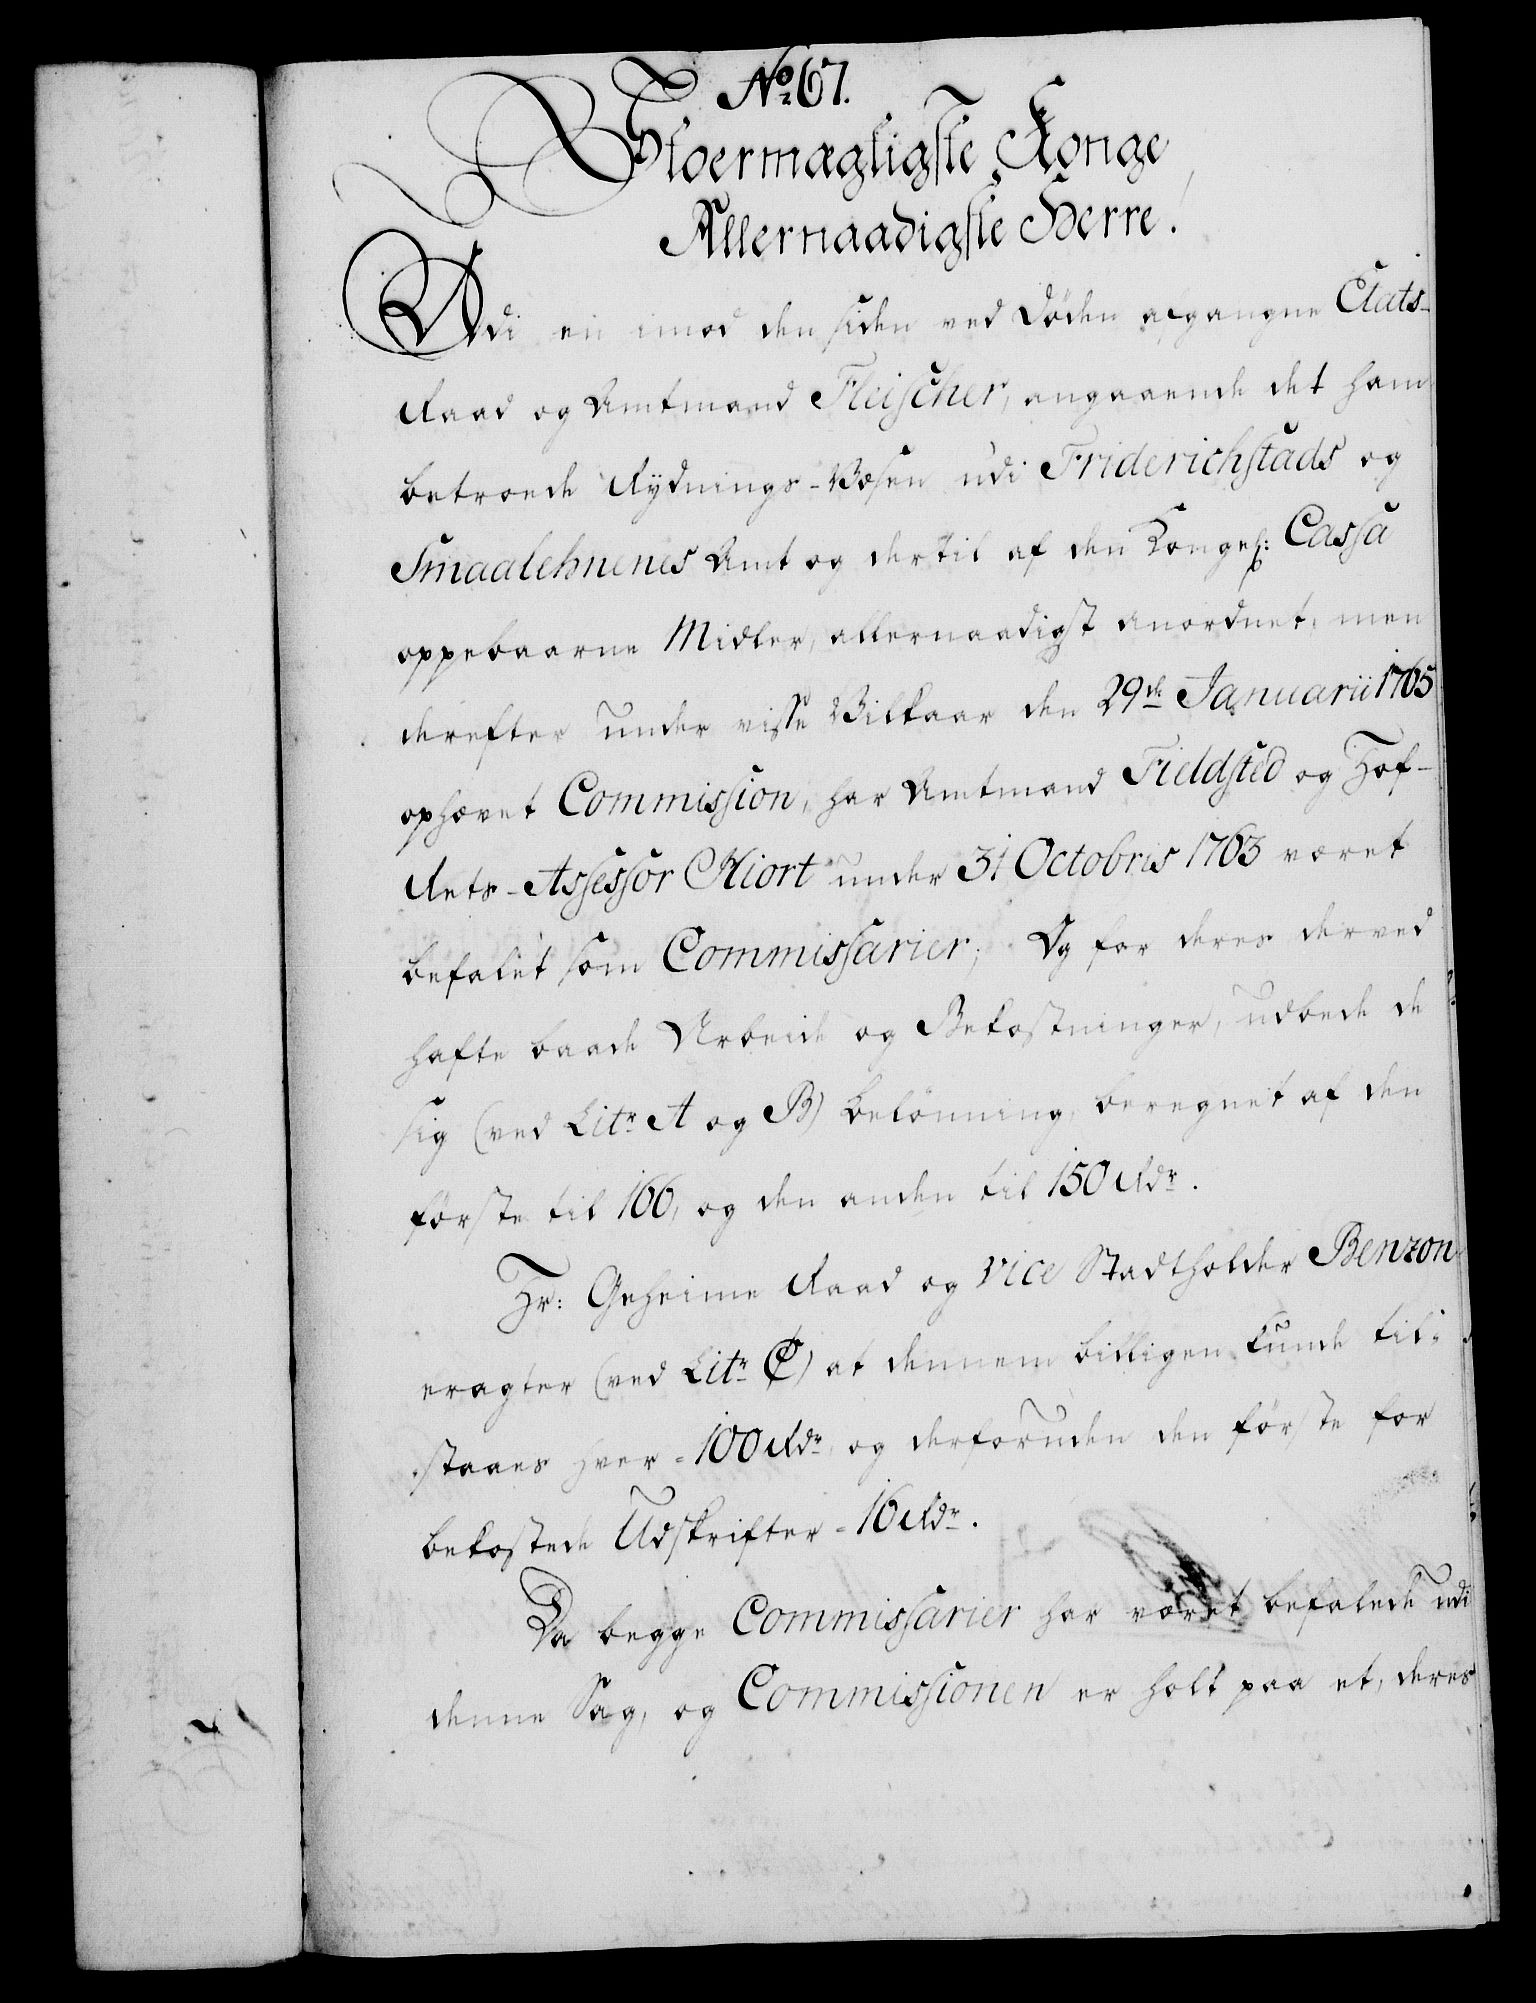 No 67.
Stoermægtigste Konge,
Allernaadigste Herre!
Udi en imod den siden ved Døden afgangne Etats-
Raad og Amtmand Fleischer, angaaende det ham
betroede Rydnings-Væsen udi Friderichstads og
Smaalehnenes Amt og dertil af den Kongel: Cassa
oppebaarne Midler, allernaadigst anordnet, men
derefter under visse Vilkaar den 29de Januarii 1765
ophævet Commission, har Amtmand Fieldsted og Hof-
Rets-Assessor Hiort under 31 Octobris 1763 været
befalet som Commissarier; Og for deres derved
hafte baade Arbeide og Bekostninger, udbede de
sig (ved Litr A og B) belönning, beregnet af den
første til 166, og den anden til 150 Rdr.
Hr: Geheime Raad og Vice Stadtholder Benzon
eragter (ved Litr C) at dennem billigen kunde til-
staaes hver = 100 Rdr, og derforuden den første for
bekostede Udskrifter = 16 Rdr.
Da begge Commissarier har været befalede udi
denne Sag, og Commissionen er holt paa et, deres